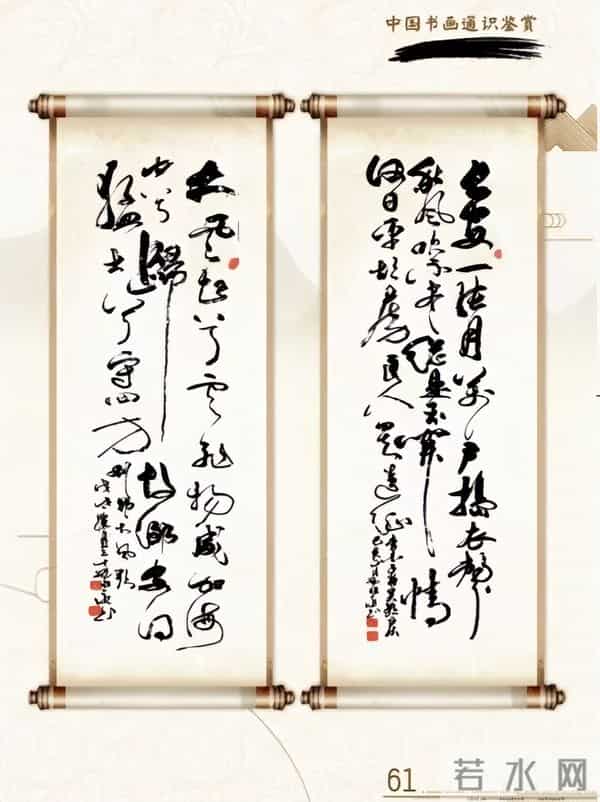 中国书画通识鉴赏
长安一片月万户捣衣声
秋风吹不尽总是玉关情
何日平胡虏良人罢远征
大风起兮云飞扬威加海
内兮归故乡安得
猛士兮守四方
刘邦大风歌
61
若水网